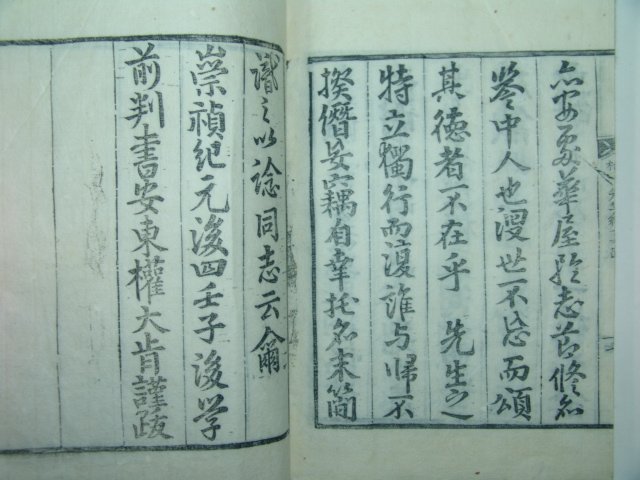 点安取華屋貶志苟修名
答中人也没世不忘而頌
其德者不在乎 先生之
特立獨行而復誰与歸不
揆僭妄忝藕自幸托名末簡
識之以諗同志云爾
崇禎紀元後四壬子後学
前判書安東權大肯謹跋